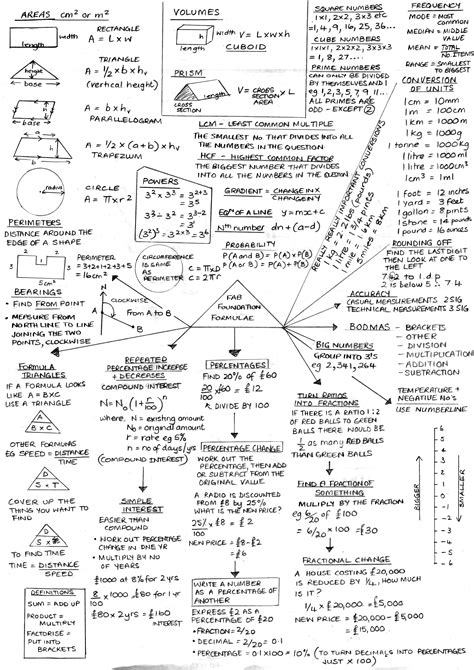 AREAS cm² or m²
length
width
RECTANGLE
A = L x W
height
base
TRIANGLE
A = ½ x b x hv
(vertical height)
base
a = b x hv
PARALLELOGRAM
A = ½ x (a+b) x hv
TRAPEZIUM
radius
CIRCLE
A = πxr²
VOLUMES
length
width
h
V = Lxwxh
CUBOID
PRISM
CROSS SECTION
V = CROSS SECTION AREA x L
SQUARE NUMBERS
1x1, 2x2, 3x3 etc
= 1, 4, 9, 16, 25, 36...
CUBE NUMBERS
1x1x1, 2x2x2, 3x3x3
= 1, 8, 27...
PRIME NUMBERS
CAN ONLY BE DIVIDED
BY THEMSELVES AND 1
eg 1, 2, 3, 5, 7, 9, 11...
ALL PRIMES ARE
ODD - EXCEPT 2
FREQUENCY
MODE = MOST COMMON
MEDIAN = MIDDLE VALUE
MEAN = TOTAL
NO. ITEMS
RANGE = SMALLEST
TO BIGGEST
CONVERSION
OF UNITS
1cm = 10mm
1m = 100cm
1km = 1000m
1kg = 1000g
1 tonne = 1000kg
1 litre = 1000ml
1 litre = 1000cm³
1cm³ = 1ml
1 foot = 12 inches
1 yard = 3 feet
1 gallon = 8 pints
1 stone = 14 pounds
1 pound = 16 ounces
LCM - LEAST COMMON MULTIPLE
THE SMALLEST NO THAT DIVIDES INTO ALL
THE NUMBERS IN THE QUESTION
HCF - HIGHEST COMMON FACTOR
THE BIGGEST NUMBER THAT DIVIDES
INTO ALL THE NUMBERS IN THE QUESTION
POWERS
3² x 3³ = 3²⁺³
= 3⁵
(3²)³ = 3²ˣ³ = 3⁶
GRADIENT = CHANGE IN X
CHANGE IN Y
EQⁿ OF A LINE y = mx+c
Nᵗʰ number dn + (a-d)
PROBABILITY
P(A and B) = P(A) x P(B)
P(A or B) = P(A) + P(B)
REALLY REALLY IMPORTANT CONVERSIONS
1 kg = 2.2 lbs (pounds)
5 miles = 8 km
PERIMETERS
DISTANCE AROUND THE
EDGE OF A SHAPE
PERIMETER
= 3+2+1+2+3+5
= 16cm²
CIRCUMFERENCE
IS SAME
AS
PERIMETER
C = πxD
C = 2πr
ROUNDING OFF
FIND THE LAST DIGIT
THEN LOOK AT ONE TO
THE LEFT
7.62 to 1 d.p
2 is below 5 ∴ 7.4
BEARINGS
• FIND FROM POINT
• MEASURE FROM
NORTH LINE TO LINE
JOINING THE TWO
POINTS, CLOCKWISE
N
CLOCKWISE
From A to B
A
B
FAB
FOUNDATION
FORMULAE
ACCURACY
CASUAL MEASUREMENTS 2SIG
TECHNICAL MEASUREMENTS 3SIG
BODMAS - BRACKETS
- OTHER
- DIVISION
- MULTIPLICATION
- ADDITION
- SUBTRACTION
BIG NUMBERS
GROUP INTO 3'S
eg 2,341,264
TEMPERATURE +
NEGATIVE No'S
USE NUMBERLINE
BIGGER
SMALLER
FORMULA
TRIANGLES
IF A FORMULA LOOKS
LIKE A = BXC
USE A TRIANGLE
A
B x C
OTHER FORMULAS
EG SPEED = DISTANCE
TIME
D
S x T
COVER UP THE
THING YOU WANT TO
FIND
D
S x
TO FIND TIME
TIME = DISTANCE
SPEED
DEFINITIONS
SUM = ADD UP
PRODUCT =
MULTIPLY
FACTORISE =
PUT INTO
BRACKETS
REPEATED
PERCENTAGE INCREASE
+ DECREASES
COMPOUND INTEREST
N = N₀(1 + r/100)ⁿ
where, N = existing amount
N₀ = original amount
r = rate eg 5%
n = no of days/yrs
(COMPOUND INTEREST)
SIMPLE
INTEREST
EASIER THAN
COMPOUND
• WORK OUT PERCENTAGE
CHANGE IN ONE YR
• MULTIPLY BY NO
OF YEARS
£1000 at 8% for 2 yrs
8/100 x 1000 = £80 for 1 yr
£80 x 2yrs = £160
INTEREST
PERCENTAGES
FIND 20% of £60
20/100 x £60 = £12
DIVIDE BY 100
PERCENTAGE CHANGE
WORK OUT THE
PERCENTAGE, THEN ADD
OR SUBTRACT FROM THE
ORIGINAL VALUE.
A RADIO IS DISCOUNTED
FROM £8 by 25%
WHAT IS THE NEW PRICE?
25% x £8 = £2
NEW PRICE = £8-£2
= £6
WRITE A NUMBER
AS A PERCENTAGE OF
ANOTHER
EXPRESS £2 AS A
PERCENTAGE OF £20
• FRACTION = 2/20
• DECIMAL = 2/20 = 0.1
• PERCENTAGE = 0.1 x 100 = 10% (TO TURN DECIMALS INTO PERCENTAGES
JUST X 100)
TURN RATIOS
INTO FRACTIONS
IF THERE IS A RATIO 1:2
OF RED BALLS TO GREEN
BALLS THERE WOULD BE
½ as many RED BALLS
THAN GREEN BALLS
FIND A FRACTION OF
SOMETHING
MULTIPLY BY THE FRACTION
eg 6/20 of £100
= 6/20 x 100 = £30
FRACTIONAL CHANGE
A HOUSE COSTING £20,000
IS REDUCED BY ¼, HOW MUCH
IS IT?
¼ x £20,000 = £5,000
NEW PRICE = £20,000 - £5,000
= £15,000